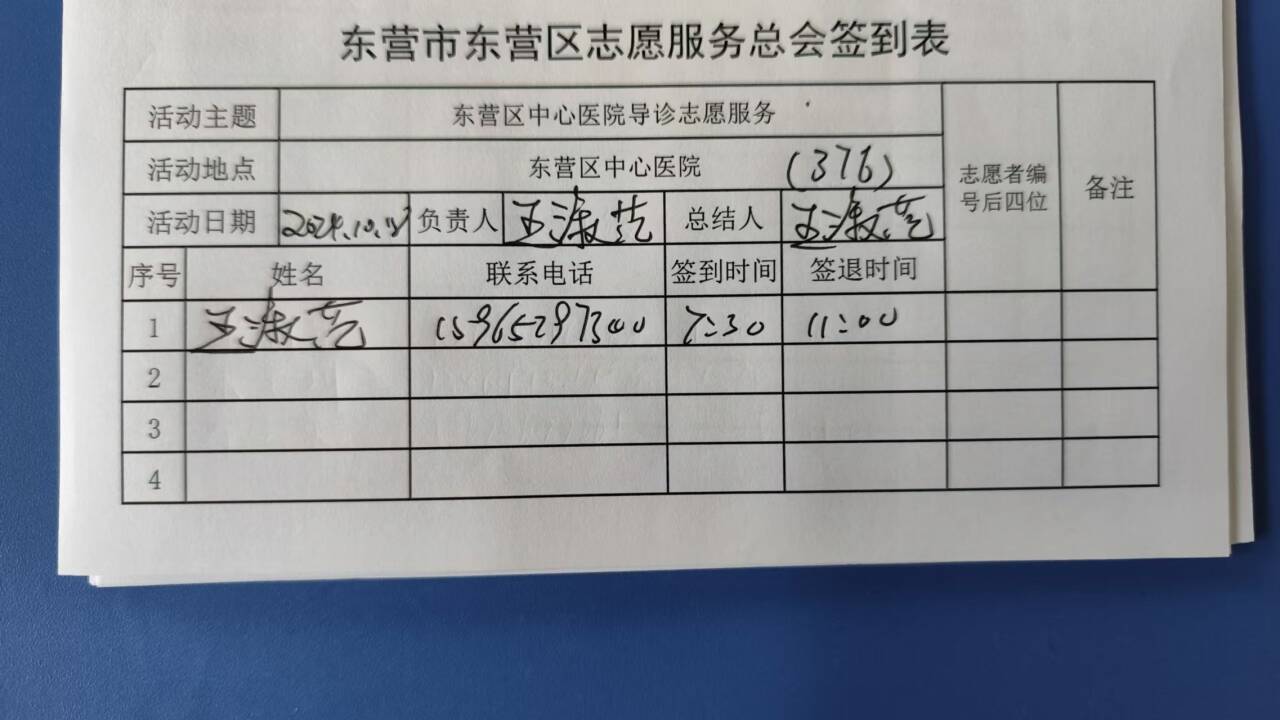 东营市东营区志愿服务总会签到表
活动主题 东营区中心医院导诊志愿服务 志愿者编号后四位 备注
活动地点 东营区中心医院 (376)
活动日期 2024.10. 负责人 王淑芸 总结人 王淑芸
序号 姓名 联系电话 签到时间 签退时间
1 王淑芸 15965297300 7:30 11:00
2
3
4